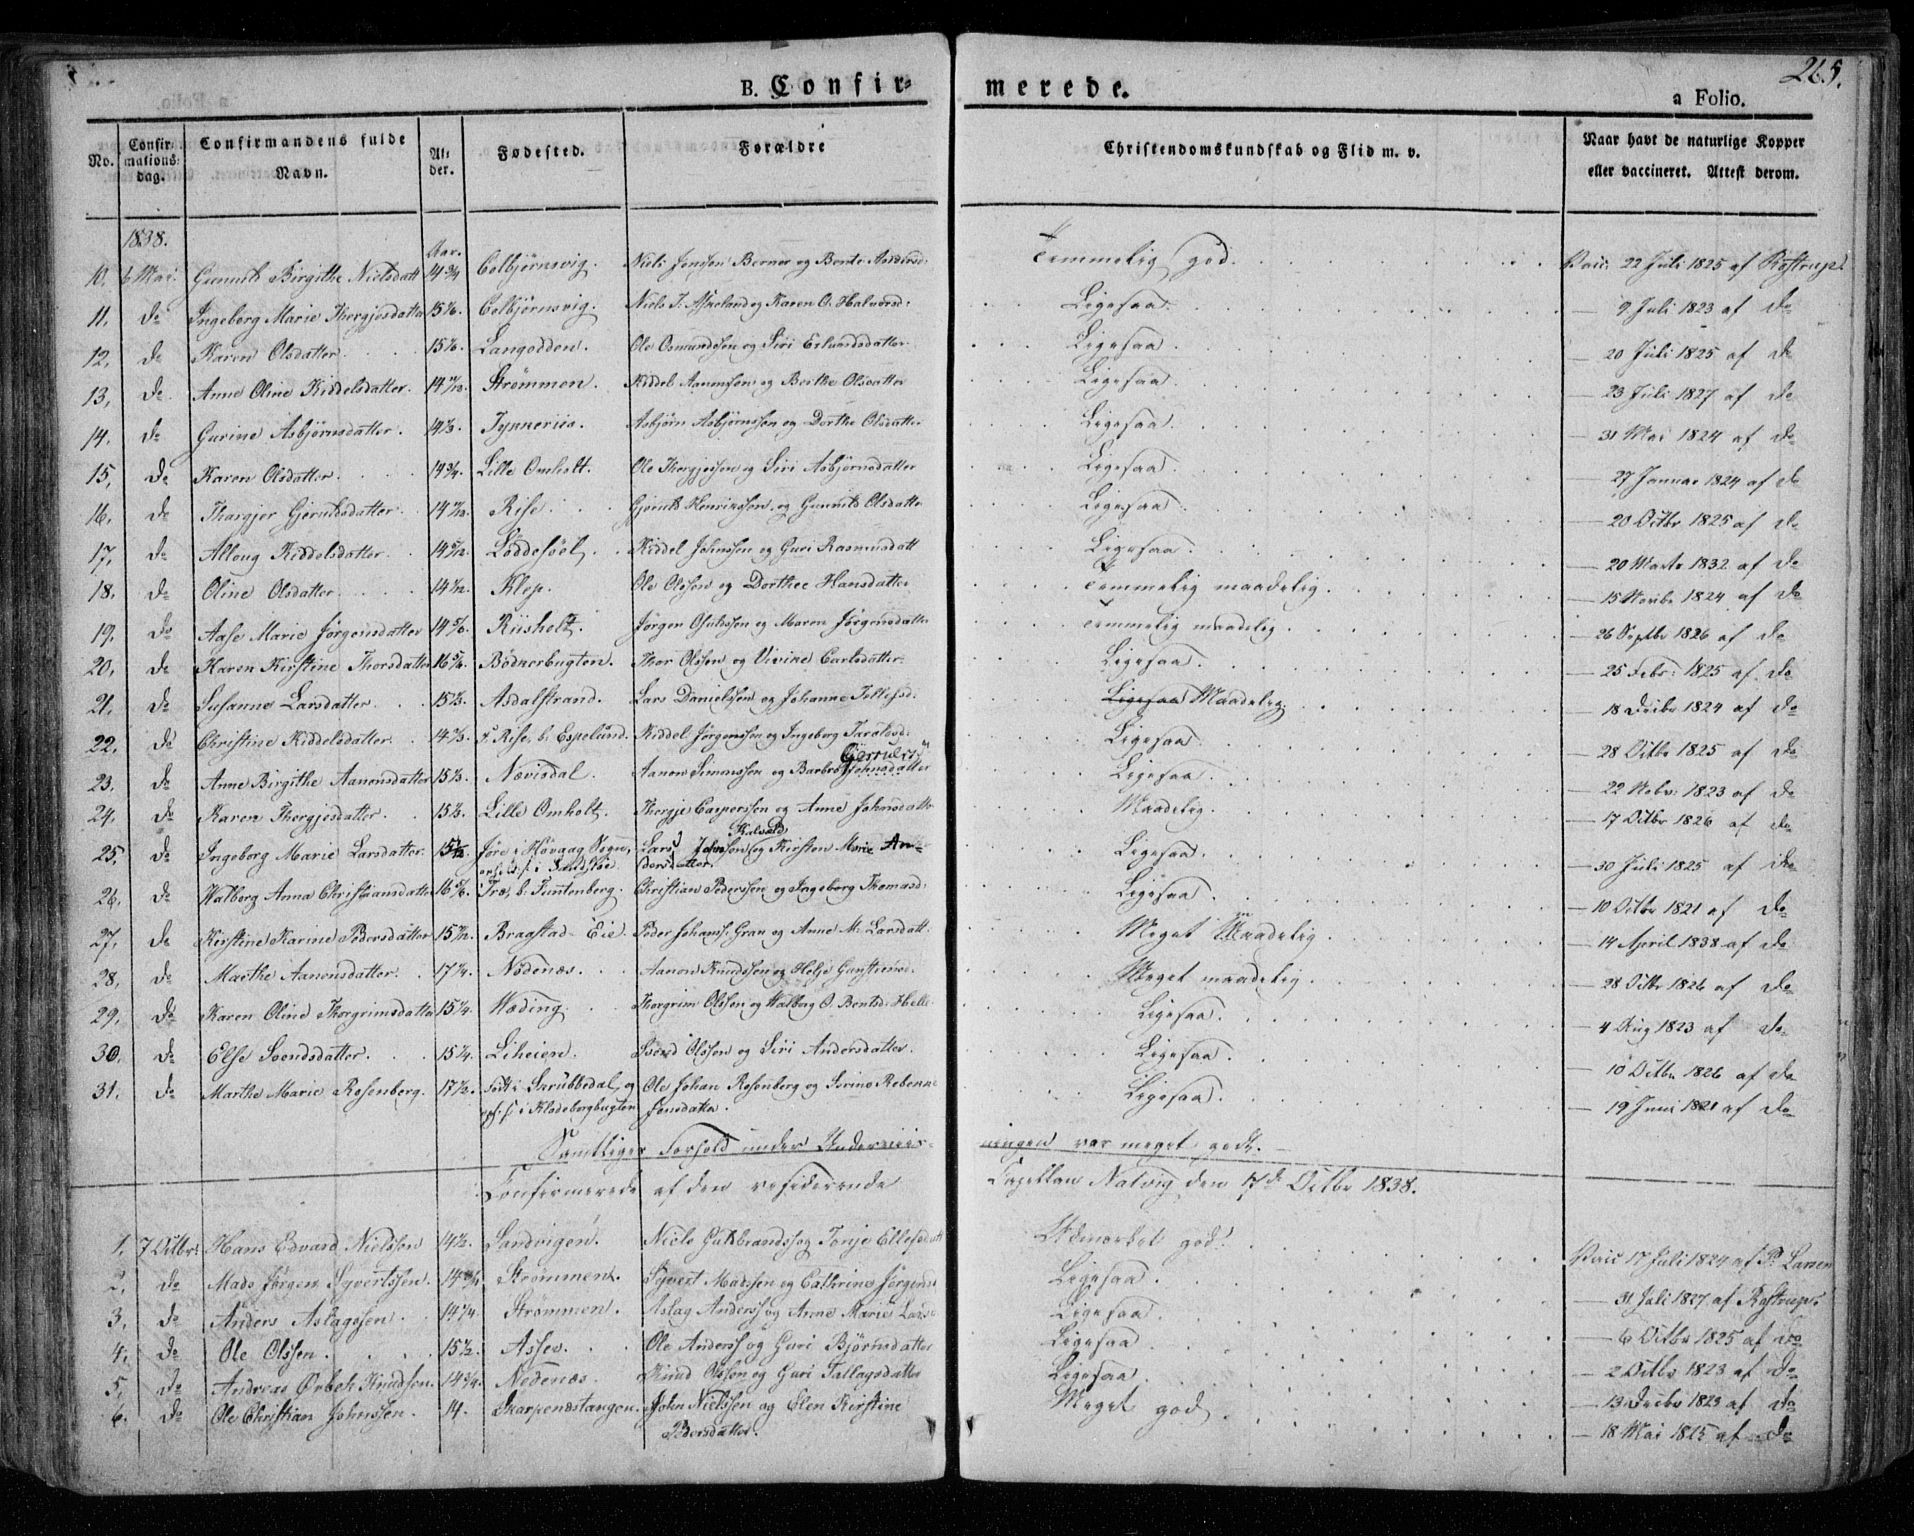 265.
B. Confir- merede.
a Folio.
No.
Confir-
mations-
dag.
Confirmandens fulde
Navn.
Al-
der.
Fødested.
Forældre
Christendomskundskab og Flid m. v.
Naar havt de naturlige Kopper
eller vaccineret. Attest derom.
1838.
Aar.
10. 6 Mai. Gunnild Birgithe Nielsdatt 14 3/4 Colbjørnsvig. Niels Jensen Berner og Berte Temmelig god. Vacc. 22 Juli 1825 af Rostrup.
11, do Ingeborg Marie Thergjesdatter 15 1/6. Colbjørnsvig. Niels T. og Karen O. Halvorsd: Ligesaa. — 9 Juli 1823 af do
12, do Karen Olsdatter. Langodden. Ole Osmundssen og Siri Erlandsdatter. Ligesaa. — 20 Juli 1825 af do
13, do. Anne Oline Kiddelsdatter. Strømmen. Kiddel Aanonsen og Berthe Olsdatter Ligesaa. — 23 Juli 1827 af do
14. do Gurine Asbjørnsdatter. 14 1/3. Asbjørn Asbjørnssen og Dorthe Olsdatter Ligesaa. — 31 Mai 1824 af do
15, do Karen Olsdatter. 14 3/4. Lille Omholt. Ole Thergjessen og Siri Asbjørnsdatter Ligesaa. — 27 Januar 1824 af do
16, do Thargjer Gjeruldsdatter. Rise. Gjeruld Henrikssen og Gunnild Olsdatter Ligesaa. — 20 Octbr 1825 af do
17, do Alloug Kiddelsdatter. 14 5/12. Løddesøel. Kiddel Johnssen og Guri Rasmusdatt Ligesaa. — 20 Marts 1832 af do
18, do Oline Olsdatter. Klep. Ole Olssen og Dorthee Hansdatter Temmelig maadelig. — 15 Novbr 1824 af do
19, do Aase Marie Jørgensdatter 14 5/6. Riisholt. Jørgen og Maren Jørgensdatter Temmelig maadelig. — 26 Septbr 1826 af do
20, do Karen Kirstine Thorsdatter 16 5/6. Bødnerbugten. Thor Olssen og Vivine Carlsdatter. Ligesaa. — 25 Febr: 1825 af do
21, do Susanne Larsdatter. 15 1/3. Asdalstrand. Lars Danielssen og Johanne Tellefsd: Ligesaa Maadelig. — 18 Decbr 1824 af do
22, do Christine Kiddelsdatter. 14 1/3. f. Rise, b. Espelund. Kiddel Jørgenssen og Ingeborg Taraldsd: Ligesaa. — 28 Octbr 1825 af do
23, do Anne Birgithe Aanonsdatter 15 1/3. Nævisdal. Aanon Simonssen og Barbro Johnsdatter Ligesaa. — 22 Nobvr 1823 af do
24, do Karen Thergjesdatter. 15 1/3. Lille Omholt. Thergje Casperssen og Anne Johnsdatter Maadelig. — 17 Octbr 1826 af do
25. do Ingeborg Marie Larsdatter. Jøre i Høvaag Sogn, Lars Johnsen og Kirsten Marie An-
dersdatter. Ligesaa. — 30 Juli 1825 af do
26, do Walborg Anna Christiansdatter 16 5/6. Træ, b. Tunntenberg. Christian Pederssen og Ingeborg Thomasd: Ligesaa. — 10 Octbr 1821 af do
27, do Kirstine Karine Pedersdatter Bragstad-Eie. Peder Johans. Gran og Anne M. Larsdatt. Meget Maadelig. — 14 April 1838 af do
28, do Marthe Aanonsdatter. 17 1/4. Nedenæs. Aanon Knudssen og Helje Meget maadelig. — 28 Octbr 1826 af do
29, do Karen Oline Thorgrimsdatter 15 1/4. Wæding. Thorgrim Olssen og Walborg O. Bentsd: Helle Ligesaa. — 4 Aug 1823 af do
30. do Else Svendsdatter. 15 1/4. Liheien. Svend Olssen og Siri Andersdatter. Ligesaa. — 10 Octbr 1826 af do
31. do Marthe Marie Rosenberg. 17 1/2. Født i Skrubbedal, og
opf. i Klodeborgbugten Ole Johan Rosenberg og Serine Rebekke
Jensdatter. Ligesaa. — 19 Juni 1821 af do
Samtliges Forhold under Underviis-
ningen var meget godt.
Confirmerede af den residerende Capellan Natvig den 7de Octbr 1838.
1. 7 Octbr. Hans Edvard Nielssen 14 1/2. Sandvigen. Niels Guldbrandss og Tonje Ellefsdatt Udmærket god. Vacc 17 Juli 1824 af P. Larsen
2, do Mads Jørgen Syvertssen. Strømmen. Syvert Madssen og Cathrine Jørgensd. Ligesaa. — 31 Juli 1827 af Rostrup.
3, do Anders Aslagssen. 14 1/4. Strømmen. Aslag Anderss og Anne Marie Larsd Ligesaa. — 6 Octbr 1825 af do
4, do Ole Olssen. 15 1/2. Assev. Ole Anderss og Guri Bjørnsdatter Ligesaa — 2 Octbr 1823 af do
5, do Andreas Ørbek Knudsen. 14 3/4. Nedenæs. Knud Olssen og Guri Tallagsdatter Ligesaa. — 13 Decbr 1823 af do
6. do Ole Christian Johnssen. 14. Skarpenestangen. John Nielssen og Elen Kirstine
Pedersdatter. Meget god — 18 Mai 1825 af do